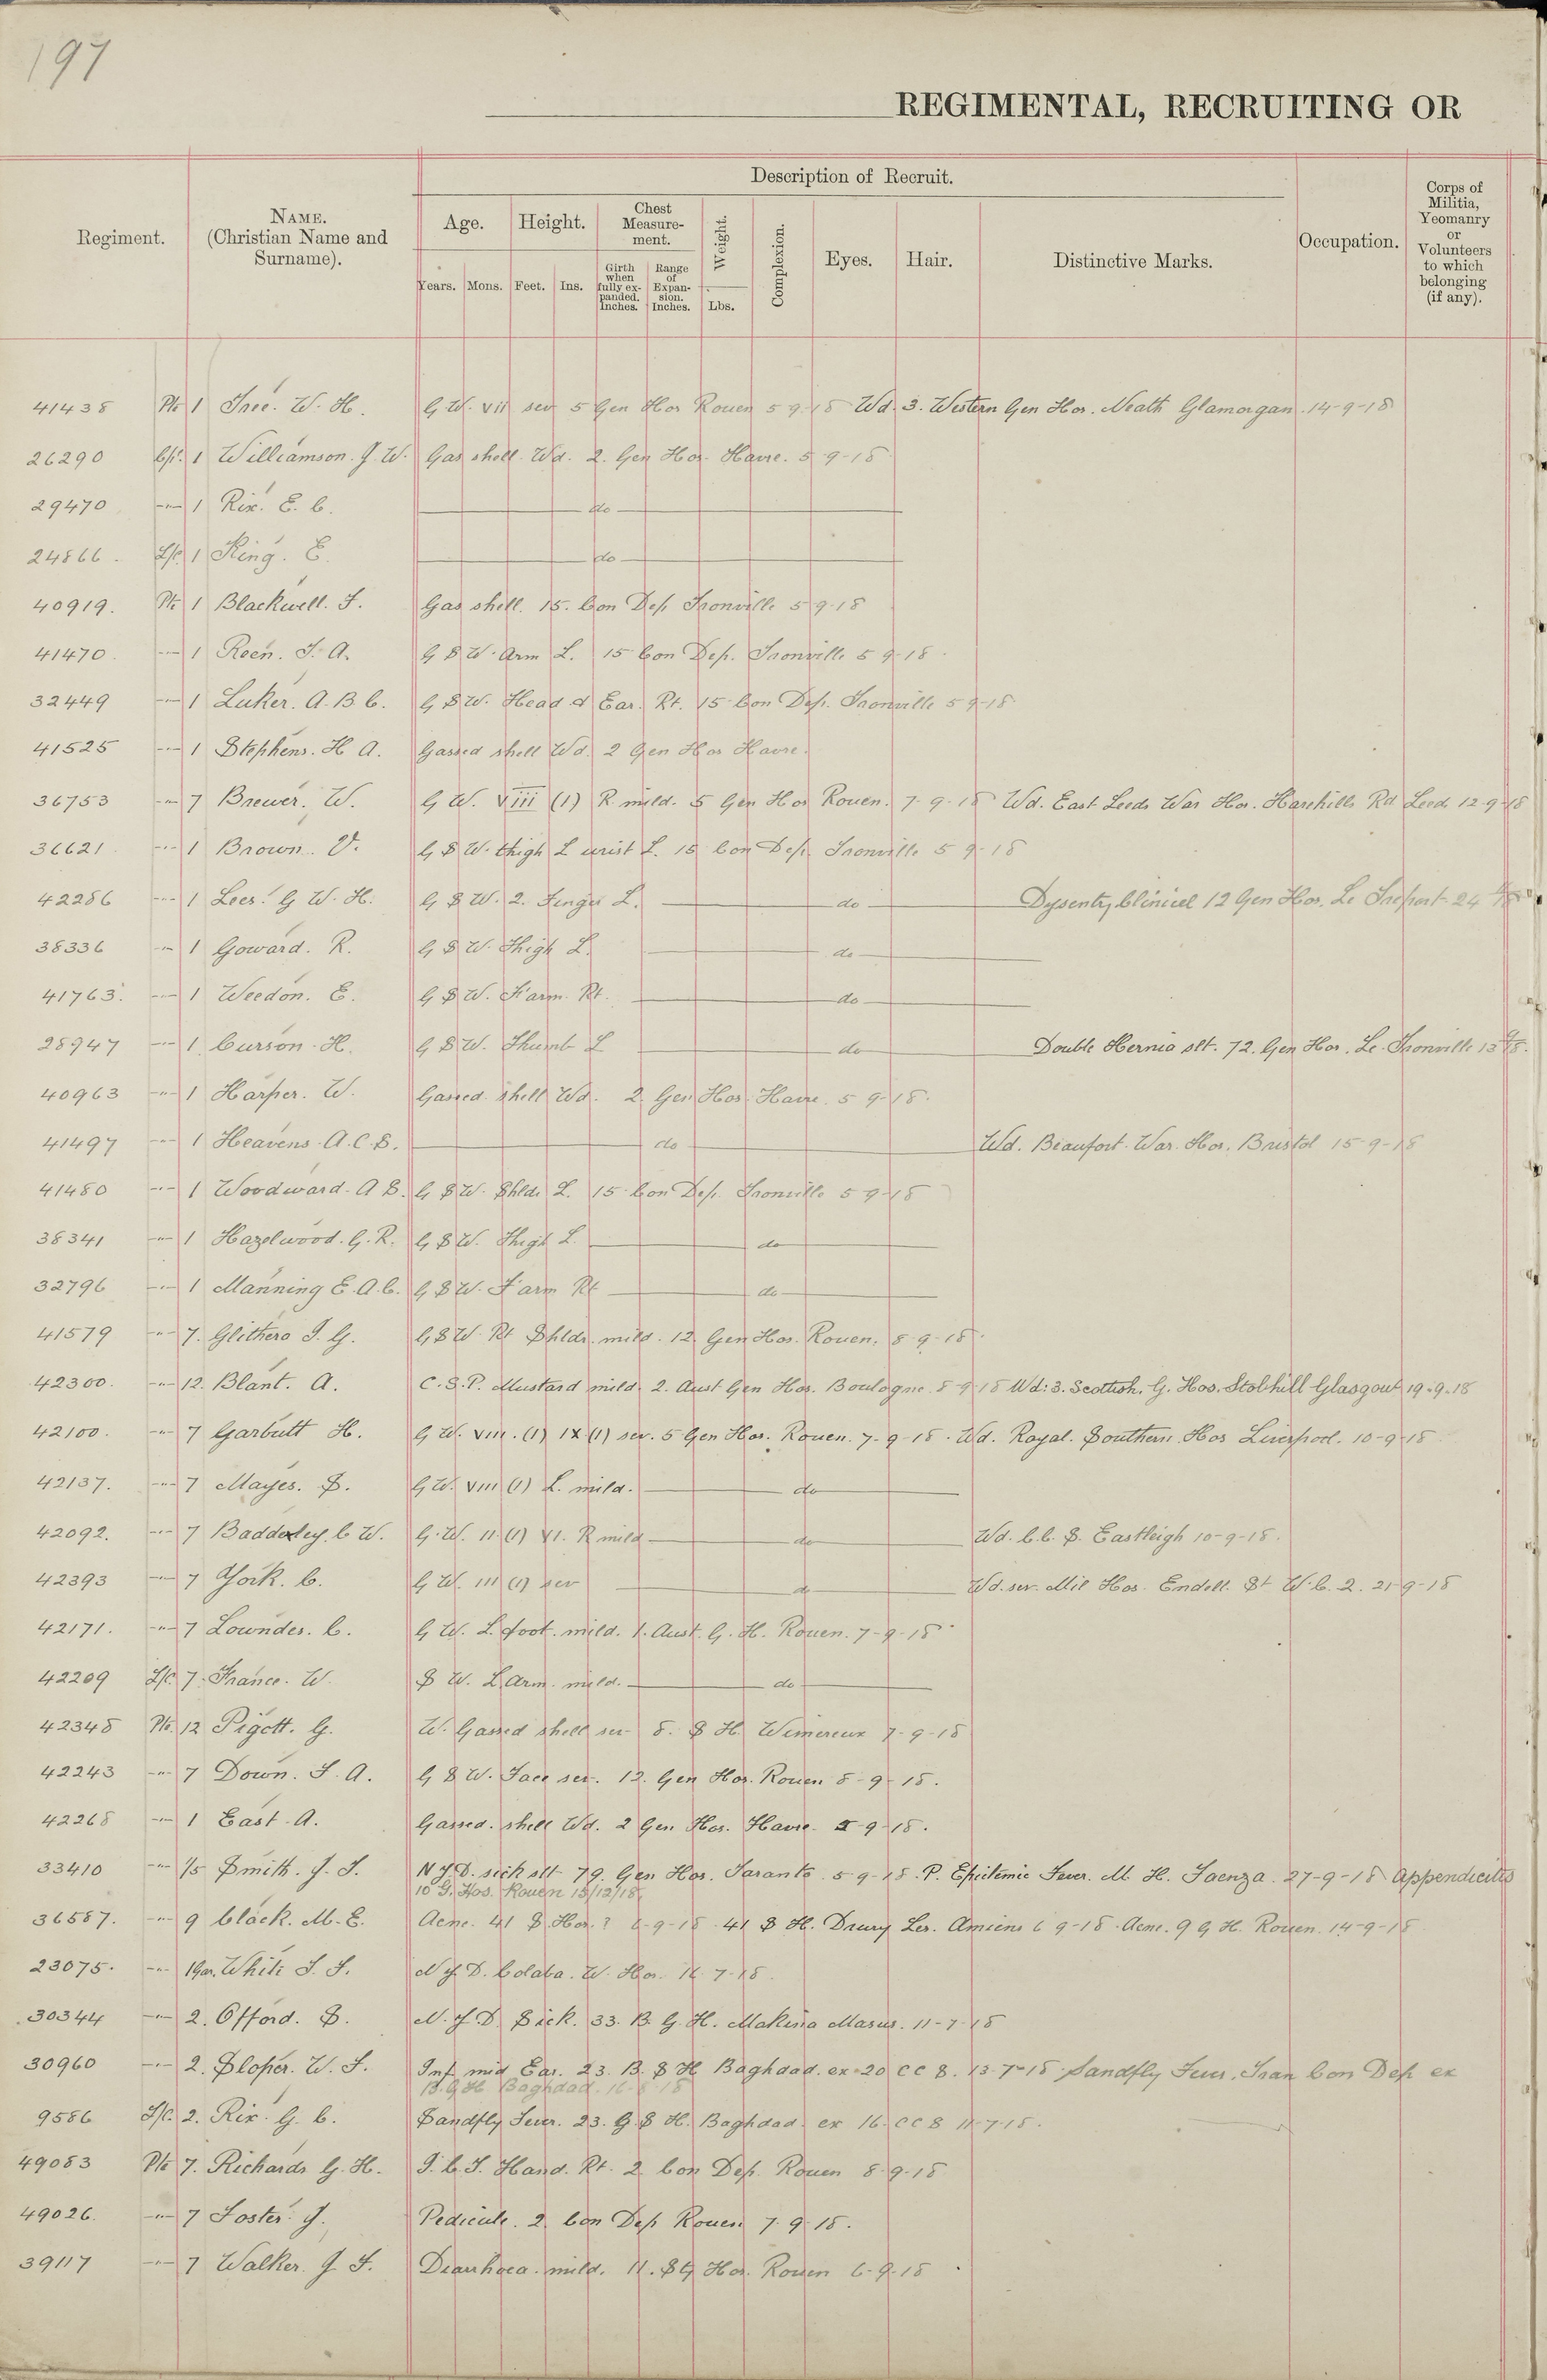 197
REGIMENTAL, RECRUITING OR
Regiment.
NAME.
(Christian Name and
Surname).
Description of Recruit.
Age.
Height.
Chest
Measure-
ment.
Weight.
Complexion.
Eyes.
Hair.
Distinctive Marks.
Occupation.
Corps of
Militia,
Yeomanry
or
Volunteers
to which
belonging
(if any).
Years.
Mons.
Feet.
Ins.
Girth
when
fully ex-
panded.
Inches.
Range
of
Expan-
sion.
Inches.
Lbs.
41438 Pte 1 Tree. W. H. G W. VII sev 5 Gen Hos Rouen 5 9-18 Wd. 3. Western Gen Hos. Neath Glamorgan. 14-9-18
26290 Cpl. 1 Williamson. J. W. Gas shell Wd. 2. Gen Hos. Havre. 5 9-18
29470 -"- 1 Rix. E. C. do
24866. L/C. 1 King. E. do
40919. Pte 1 Blackwell. F. Gas shell. 15. Con Dep Tronville 5 9-18
41470. -"- 1 Reen. T. A. G S W. Arm L. 15 Con Dep. Tronville 5 9-18.
32449 -"- 1 Luker. A. B. C. G S W. Head & Ear. Rt. 15 Con Dep. Tronville 5 9-18
41525 -"- 1 Stephens. H A. Gassed shell Wd. 2 Gen Hos Havre.
36753 -"- 7 Brewer. W. G W. VIII (1) R. mild. 5 Gen Hos Rouen. 7-9-18 Wd. East Leeds War Hos. Harehills Rd Leeds 12-9-18
36621 -"- 1 Brown. V. G S W. thigh L wrist L. 15 Con Dep. Tronville 5 9-18
42286 -"- 1 Lees. G W. H. G S W. 2. Finger L. do Dysentry Clinicel 12 Gen Hos. Le Treport 24
38336 -"- 1 Goward. R. G S W. Thigh L. do
41763. -"- 1 Weedon. E. G S W. F'arm. Rt. do
28947 -"- 1 Curson. H. G S W. Thumb L do Double Hernia slt. 72. Gen Hos. Le. Tronville 13 9/18.
40963 -"- 1 Harper. W. Gassed shell Wd. 2. Gen Hos. Havre. 5 9-18.
41497 -"- 1 Heavens. A. C. S. do Wd. Beaufort. War. Hos. Bristol 15-9-18
41480 -"- 1 Woodward. A S. G S W. Shldr L. 15 Con Dep. Tronville 5 9-18
38341 -"- 1 Hazelwood. G. R. G S W. Thigh L. do
32796 -"- 1 Manning E. A. C. G S W. F'arm Rt do
41579 -"- 7. Glithero J. G. G S W. Rt Shldr. mild. 12. Gen Hos. Rouen. 8-9-18.
42300. -"- 12. Blant. A. C. S. P. Mustard mild. 2. Aust Gen Hos. Boulogne. 8 9 18 Wd: 3. Scottish. G. Hos. Stobhill Glasgow 19.9.18
42100. -"- 7 Garbutt H. G W. VIII. (1) IX (1) sev. 5 Gen Hos. Rouen. 7-9-18. Wd. Royal. Southern Hos Liverpool. 10-9-18
42137. -"- 7 Mayes. S. G W. VIII (1) L. mild. do
42092. -"- 7 Baddeley. C W. G. W. II (1) VI. R mild do Wd. C. C. S. Eastleigh 10-9-18.
42393 -"- 7 York. C. G W. III (1) sev do Wd. sev. Mil Hos. Endell. St W. C. 2. 21-9-18
42171. -"- 7 Lowndes. C. G W. L. foot. mild. 1. Aust. G. H. Rouen. 7-9-18
42209 L/C. 7. France. W. S W. L Arm. mild. do
42348 Pte. 12 Pigott. G. W. Gassed shell sev 8. S H. Wimereux 7-9-18
42243 -"- 7 Down. F. A. G S W. Face sev. 12. Gen Hos. Rouen 8-9-18.
42268 -"- 1 East. A. Gassed. shell Wd. 2 Gen Hos. Havre. 5-9-18.
33410 -"- 1/5 Smith. J. T. N Y D. sick slt 79. Gen Hos. Taranto. 5-9-18. P. Epidemic Fever. M. H. Faenza. 27-9-18 Appendicitis
10 G. Hos. Rouen 13/12/18.
36587. -"- 9 Clack. M. E. Acne. 41 S Hos. ? 6-9-18. 41 S H. Drury Les. Amiens 6 9-18. Acne. 9 G H. Rouen. 14-9-18
23075. -"- 1 Gar. White T. F. N Y D. Colaba. W. Hos. 16 7-18.
30344 -"- 2. Offord. S. N. Y. D. Sick. 33. B. G. H. Makina Masus. 11-7-18
30960 -"- 2. Sloper. W. F. Inf. mid Ear. 23. B. S H Baghdad. ex 20 C C S. 13-7-18 Sandfly Fever. Con Dep ex
B. G H Baghdad. 16-8-18
9586 L/C. 2. Rix. G. C. Sandfly Fever. 23. G. S H. Baghdad. ex 16. C C S 11-7-18.
49083 Pte 7. Richards G. H. I. C. T. Hand. Rt. 2. Con Dep. Rouen 8-9-18
49026. -"- 7 Foster. J. Pedicule. 2. Con Dep Rouen 7. 9. 18.
39117 -"- 7 Walker. J F. Diarrhoea. mild. 11. Stg Hos. Rouen 6-9-18